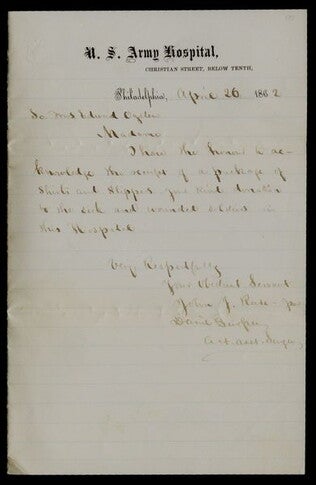 U. S. Army Hospital,
CHRISTIAN STREET, BELOW TENTH,
Philadelphia, April 26 1862
To Mrs Edward Ogden
Madame
I have the honor to ac-
knowledge the receipt of a package of
Shirts and Slippers your kind donation
to the sick and wounded soldiers in
this Hospital
Very Respectfully
Your Obedient Servant
John J.